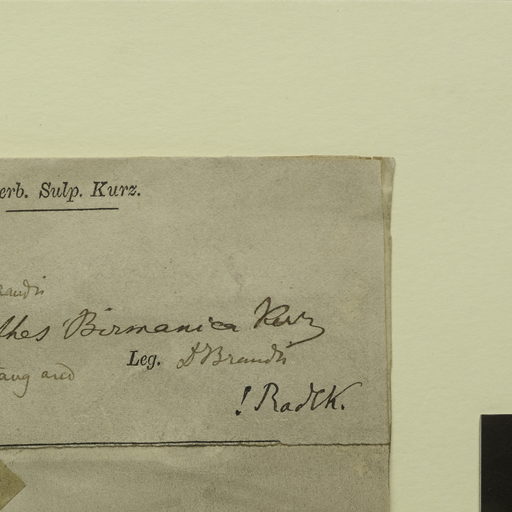 erb. Sulp. Kurz.
Brandis
thes Birmanica Kurz
Leg. D Brandis
and
! Radlk.